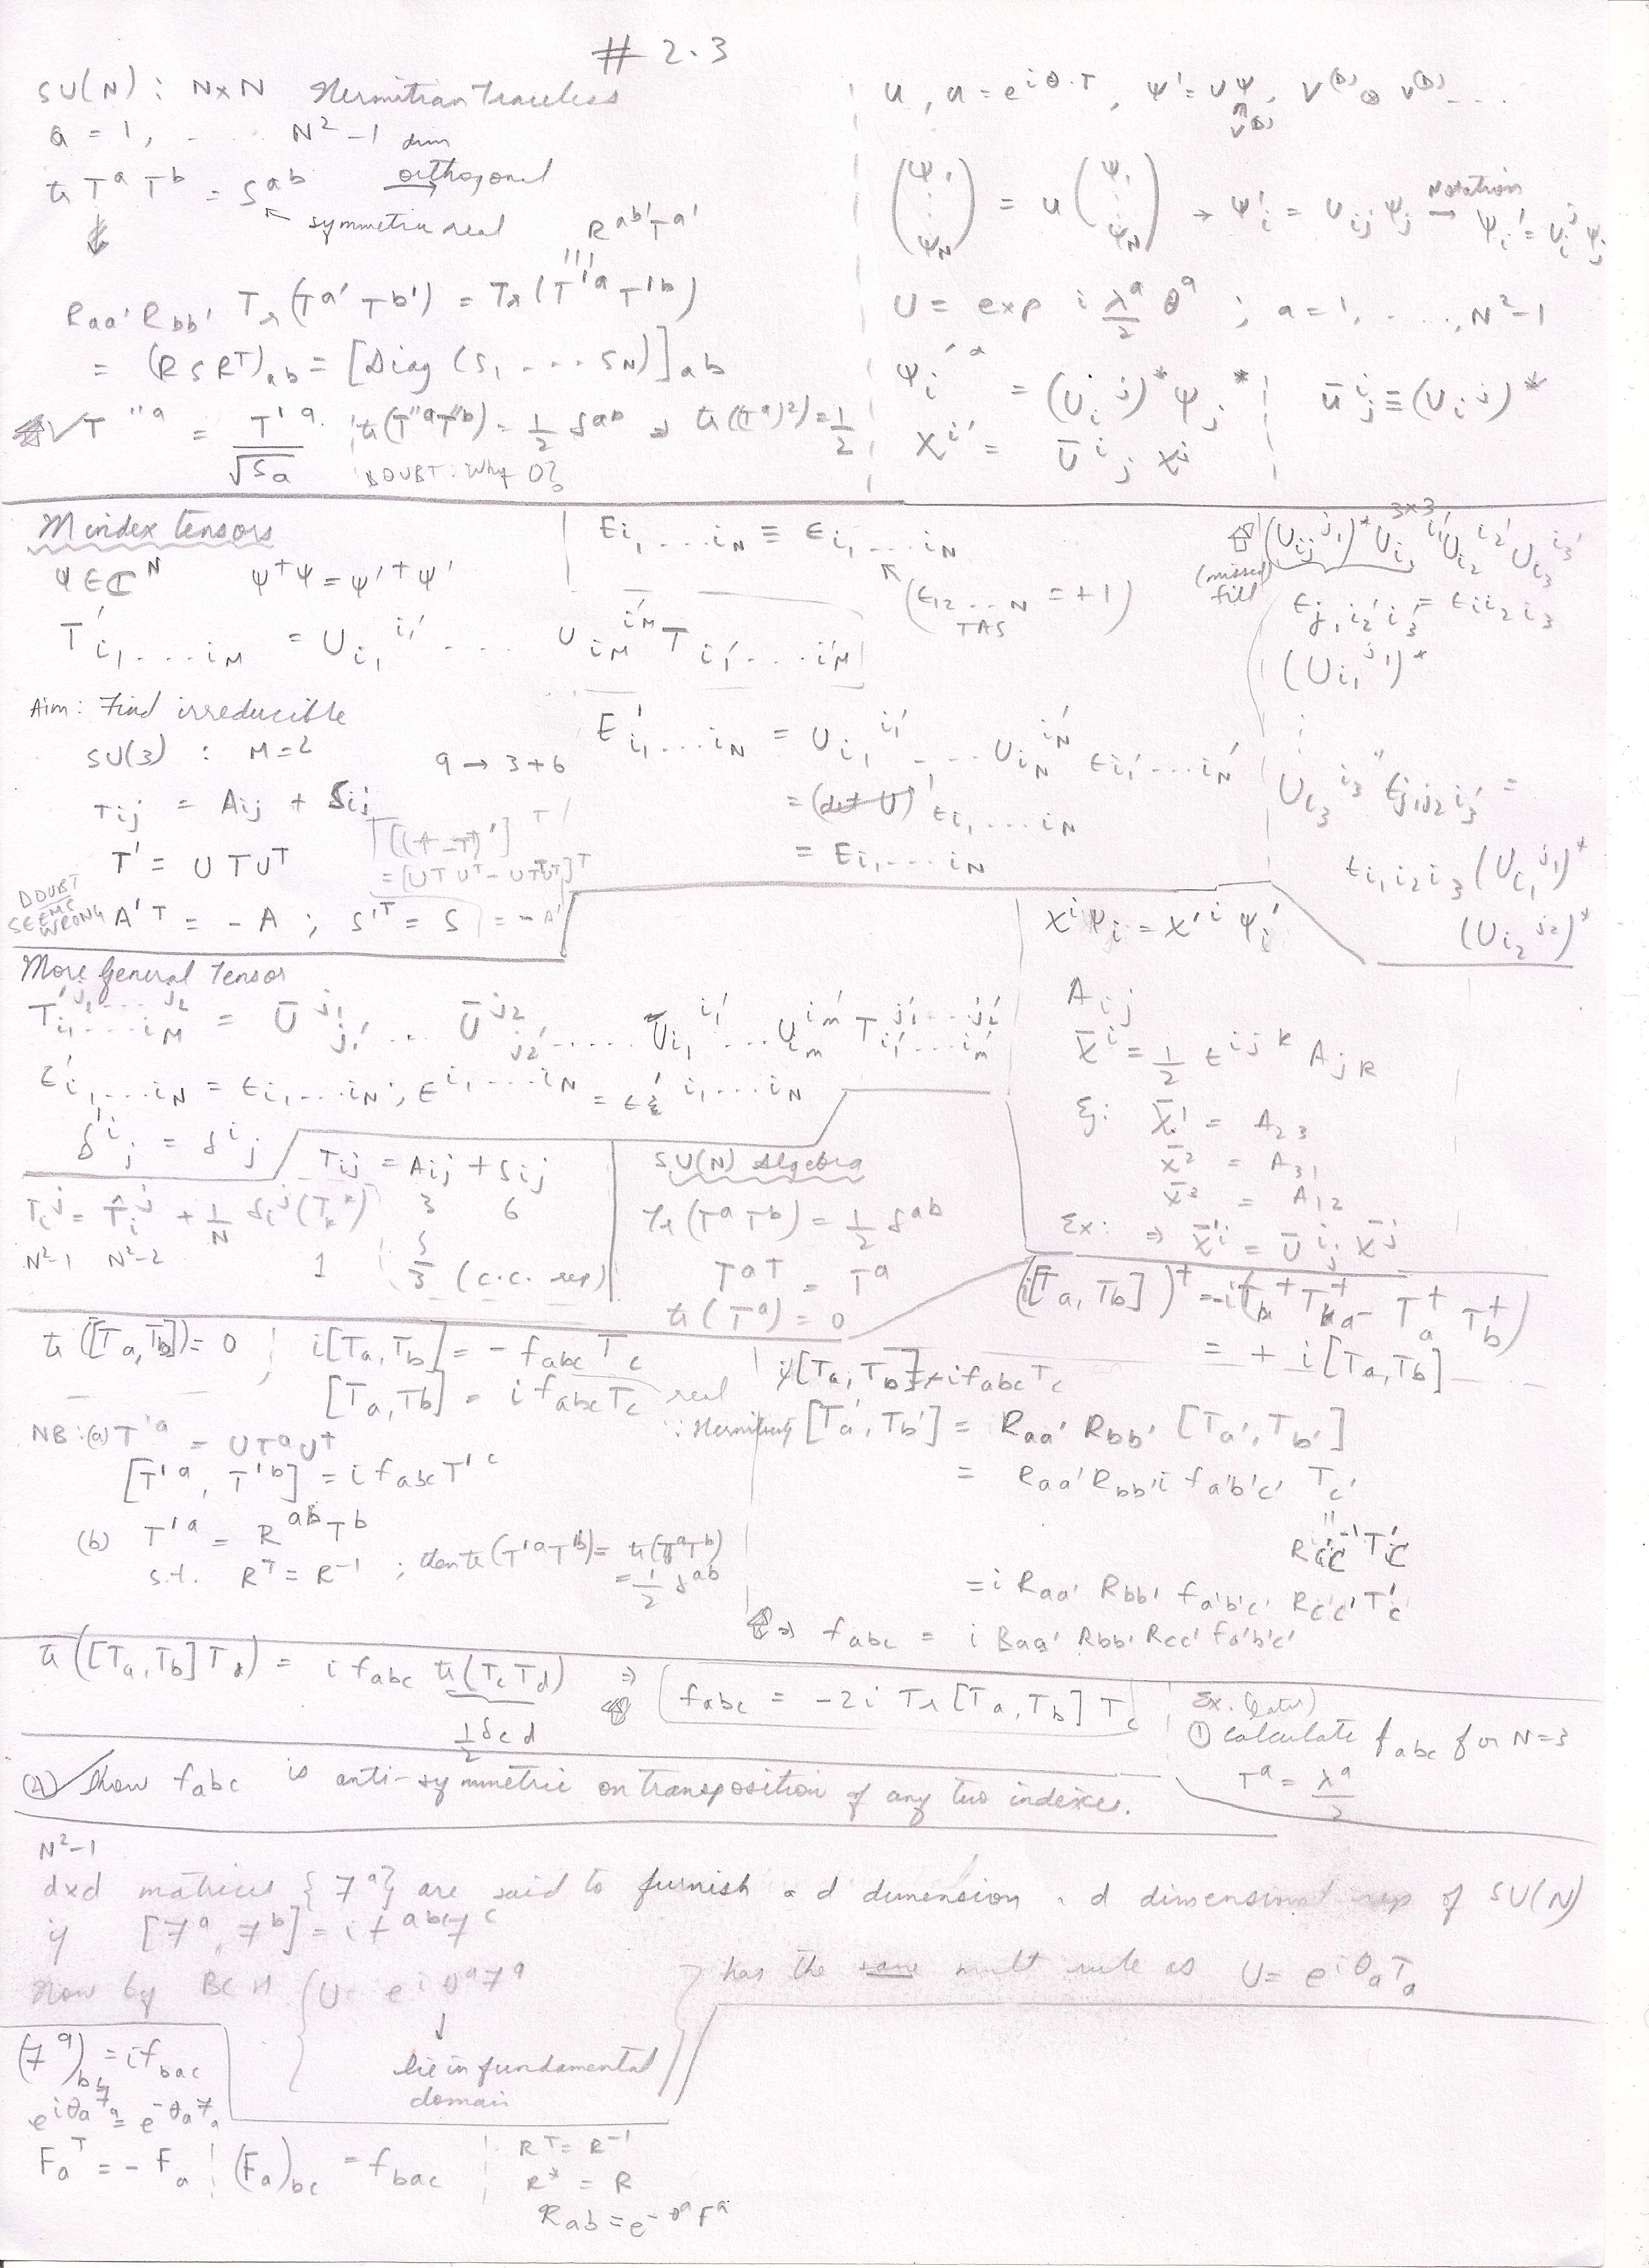 # 2.3
SU(N) : N×N Hermitian traceless
a = 1, ..... N²-1 dim
tr Tᵃ Tᵇ = Sᵃᵇ orthogonal →
↖ symmetric real
Rᵃᵇ' Tᵃ'
Raa' Rbb' Tr (Tᵃ' Tᵇ') = Tr (T'ᵃ T'ᵇ)
= (R S Rᵀ)ab = [Diag (S₁ .... SN)]ab
T''ᵃ = T'ᵃ / √Sa tr (T''ᵃ T''ᵇ) = 1/2 δᵃᵇ ⇒ tr ((Tᵃ)²) = 1/2
DOUBT: Why 0?
U, U = e^{iθ·T}, Ψ' = UΨ, V⁽ᴰ⁾ ⊗ V⁽ᴰ⁾ ....
(Ψ₁ ⋮ ΨN) = U (Ψ₁ ⋮ ΨN) → Ψ'i = Uij Ψj Notation → Ψi' = Ui^j Ψj
U = exp i λᵃ/2 θᵃ ; a = 1, ...., N²-1
Ψi'* = (Ui^j)* Ψj* Ū^i_j ≡ (Ui^j)*
χ^i' = Ū^i_j χ^j
M index tensors
Ψ ∈ ℂᴺ Ψ†Ψ = Ψ'†Ψ'
T'i₁....iM = Ui₁^i₁' .... UiM^iM' Ti₁'....iM'
Aim: Find irreducible
SU(3) : M=2 9 → 3+6
Tij = Aij + Sij
T' = U T Uᵀ
[(T-T)']ᵀ
= [UTUᵀ - UTᵀUᵀ]ᵀ
DOUBT SEEMS WRONG A'ᵀ = -A ; S'ᵀ = S = -A'
Ei₁....iN ≡ εi₁....iN
(ε12...N = +1)
TAS
E'i₁....iN = Ui₁^i₁' .... UiN^iN' εi₁'....iN'
= (det U) εi₁....iN
= Ei₁....iN
3×3
(Uij^j₁)* Ui₁^i₁' Ui₂^i₂' Ui₃^i₃'
(missed fill)
εj₁i₂'i₃' = εii₂i₃
(Ui₁^j₁)*
Ui₃^i₃'' εj₁j₂i₃' =
εi₁i₂i₃ (Ui₁^j₁)*
(Ui₂^j₂)*
χ^i Ψi = χ'^i Ψi'
More general Tensor
T'i₁....iM^j₁....j₂ = Ū^j₁_j₁' ... Ū^j₂_j₂' ..... Ui₁^i₁' ... Uim^im' Ti₁'....im'^j₁'....j₂'
ε'i₁....iN = εi₁....iN ; ε^i₁....iN = ε'^i₁....iN
δ'^i_j = δ^i_j
Aij
χ̄^i = 1/2 ε^ijk Ajk
Eg: χ̄¹ = A23
χ̄² = A31
χ̄³ = A12
Ex: ⇒ χ̄'^i = Ū^i_j χ̄^j
Ti^j = T̂i^j + 1/N δi^j (Tk^k)
N²-1 N²-2 1
Tij = Aij + Sij
3 6
3̄ (c.c. rep)
SU(N) Algebra
Tr (Tᵃ Tᵇ) = 1/2 δᵃᵇ
Tᵃ† = Tᵃ
tr (Tᵃ) = 0
(i[Ta, Tb])† = -i(Tb† Ta† - Ta† Tb†)
= + i [Ta, Tb]
tr ([Ta, Tb]) = 0 i[Ta, Tb] = - fabc Tc
[Ta, Tb] = i fabc Tc real
∵ Hermiticity
[Ta, Tb] = ifabc Tc
NB: (a) T'ᵃ = U Tᵃ U†
[T'ᵃ, T'ᵇ] = i fabc T'ᶜ
(b) T'ᵃ = Rᵃᵇ Tᵇ
s.t. Rᵀ = R⁻¹ ; then tr (T'ᵃ T'ᵇ) = tr (TᵃTᵇ)
= 1/2 δᵃᵇ
[Ta', Tb'] = Raa' Rbb' [Ta', Tb']
= Raa' Rbb' i fa'b'c' Tc'
Rc'c⁻¹ T'c
= i Raa' Rbb' fa'b'c' Rcc' T'c
⇒ fabc = i Raa' Rbb' Rcc' fa'b'c'
tr ([Ta, Tb] Td) = i fabc tr (Tc Td)
1/2 δcd
⇒ fabc = -2i Tr [Ta, Tb] Tc
Ex. (later)
① calculate fabc for N=3
Tᵃ = λᵃ/2
② Show fabc is anti-symmetric on transposition of any two indexes.
N²-1
d×d matrices {7ᵃ} are said to furnish a d dimension . d dimensional rep of SU(N)
if [7ᵃ, 7ᵇ] = i fᵃᵇᶜ 7ᶜ
Now by BCH { U = e^{iθᵃ7ᵃ} } has the same mult rule as U = e^{iθaTa}
↓
lie in fundamental
domain
(7ᵃ)bc = i fbac
e^{iθa7a} = e^{-θa7a}
Faᵀ = - Fa (Fa)bc = fbac
Rᵀ = R⁻¹
R* = R
Rab = e^{-θᵃFᵃ}